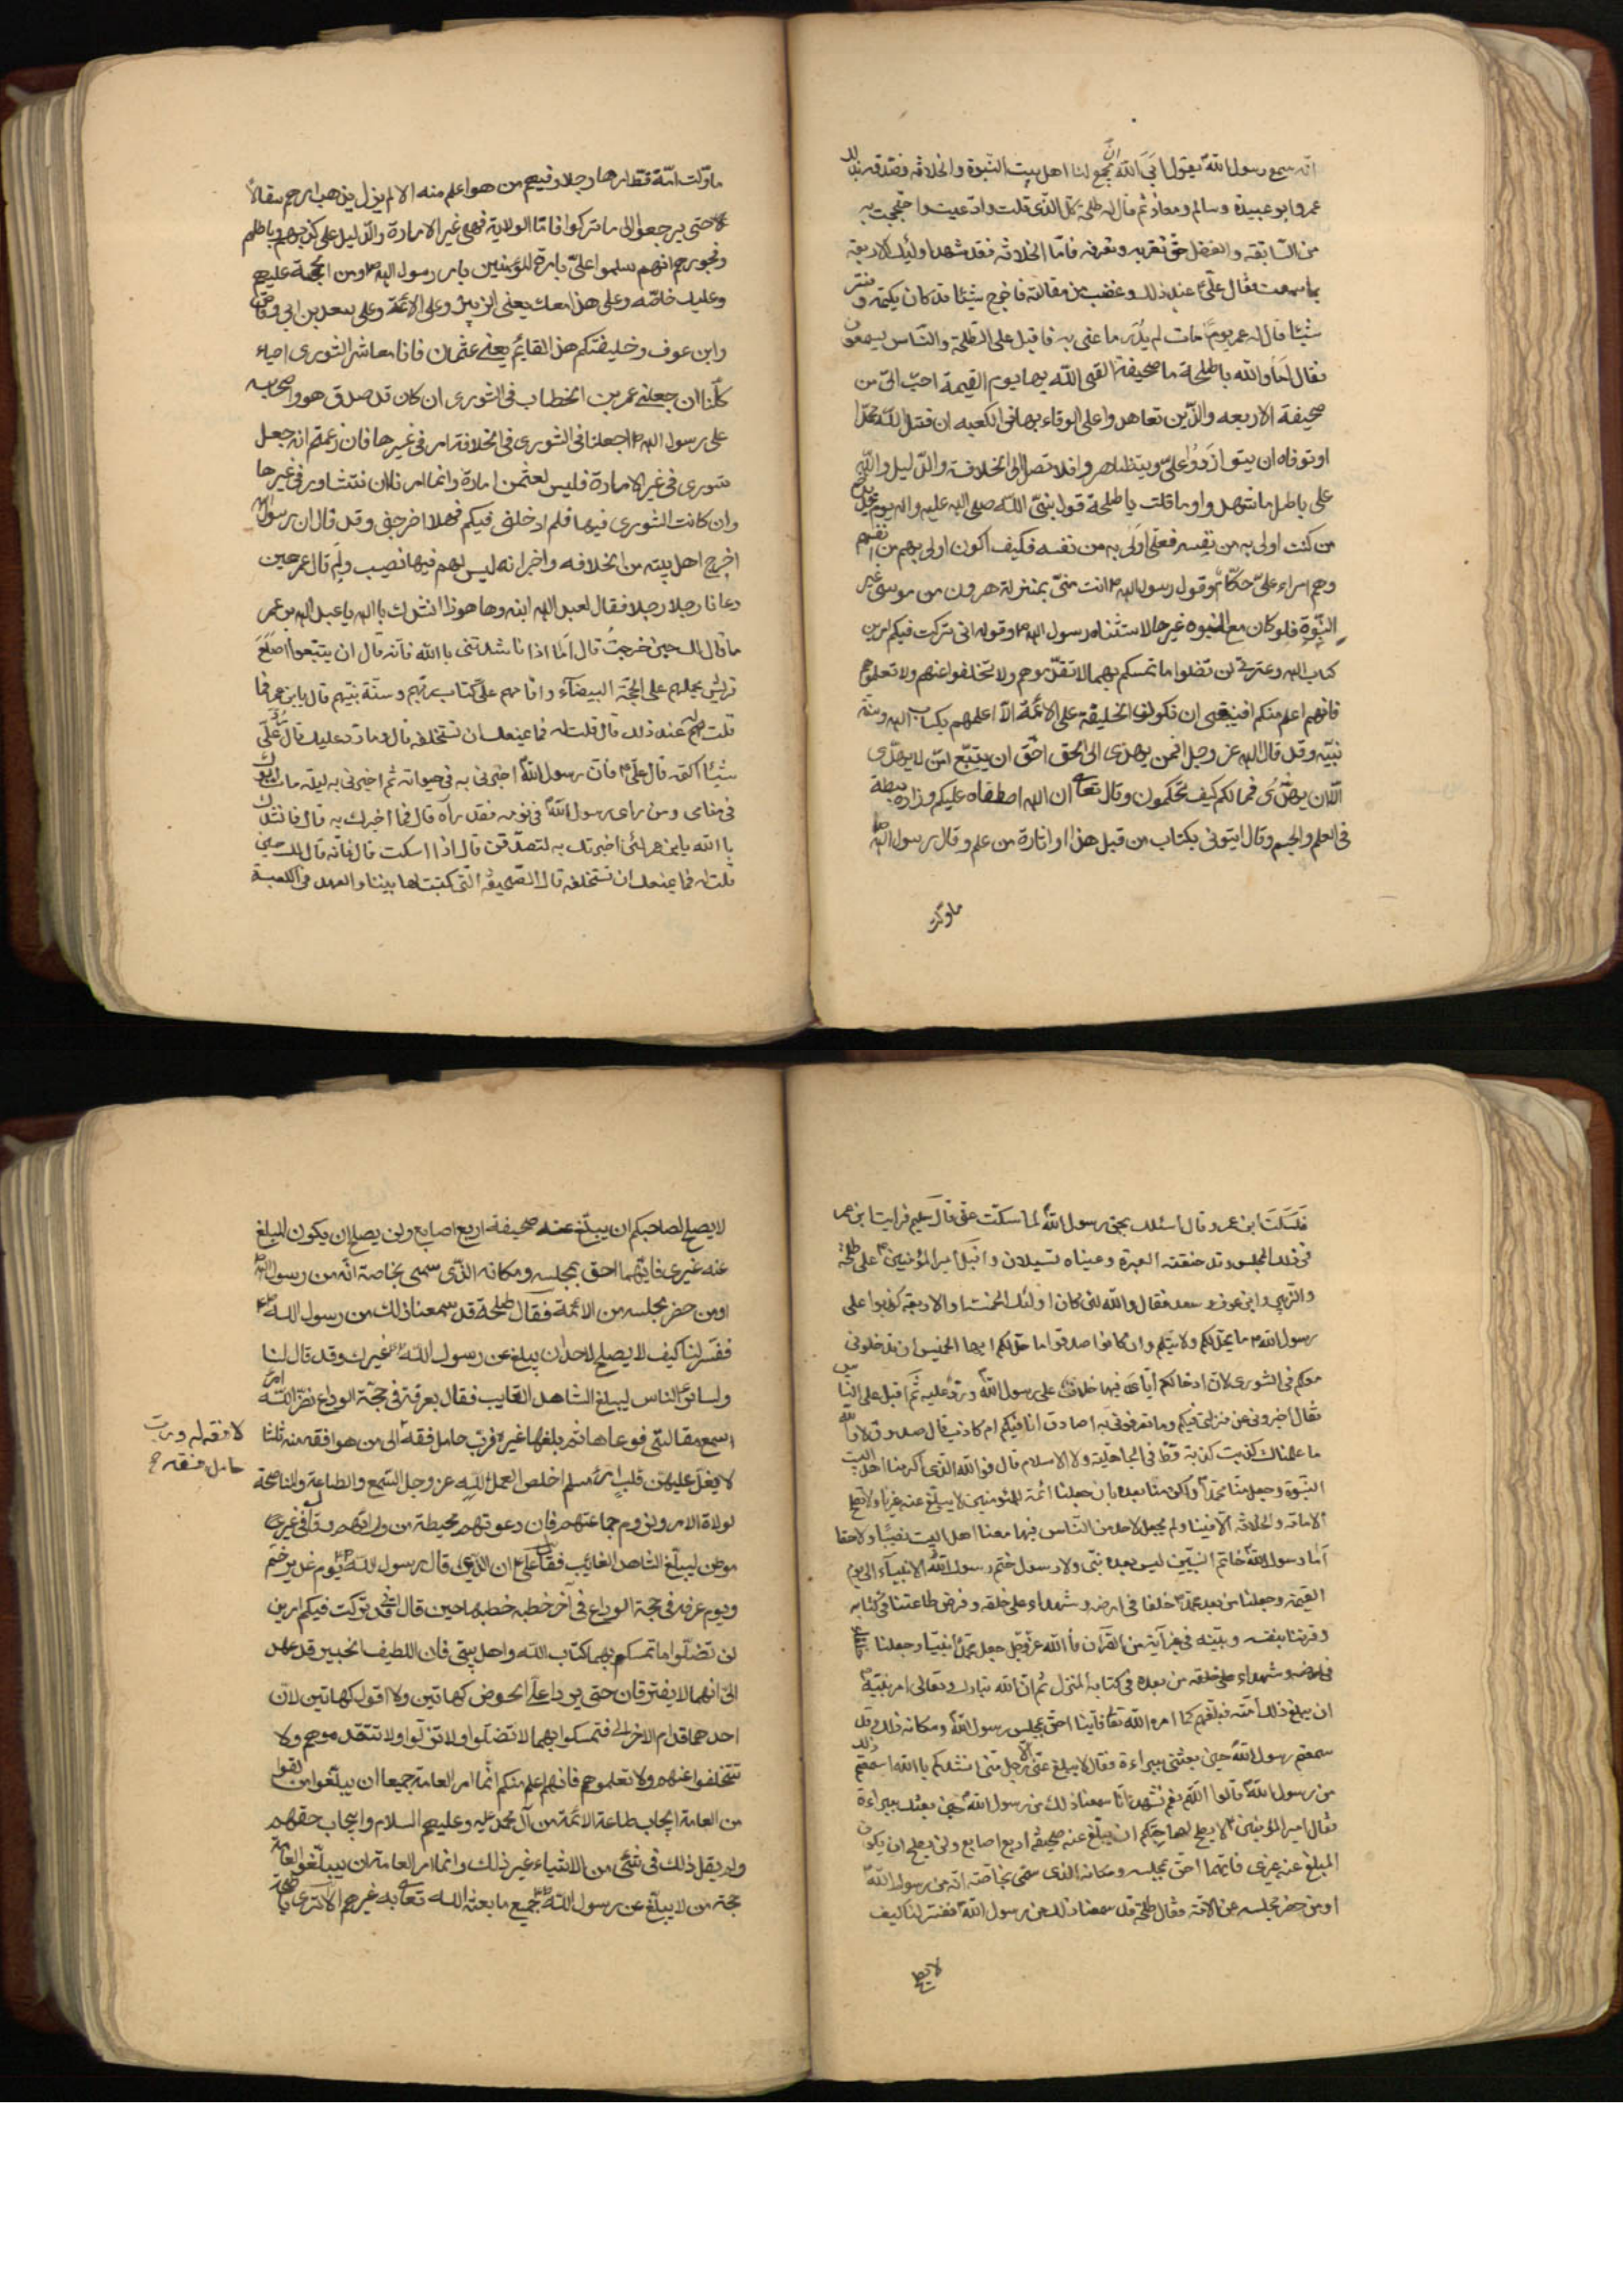 انه سمع رسول الله يقول ابى الله ان يجمع لنا اهل بيت النبوة والخلافة فصدقه بذلك
عمر وابو عبيدة وسالم ومعاذ ثم قال له طلحة كل الذى قلت وادعيت واحتججت به
من السابقة والفضل حق نقر به ونعرفه فاما الخلافة فقد شهد اولئك الاربعة
بما سمعت فقال على عند ذلك وغضب من مقالته فاخرج شيئا قد كان يكتمه وفسر
شيئا قال له عمر يوم مات لم يدر ما عنى به فاقبل على الطلحة والناس يسمعون
فقال اما والله يا طلحة ما صحيفة القى الله بها يوم القيمة احب الى من
صحيفة الاربعه والذين تعاهدوا على الوفاء بها فى الكعبه ان قتل الله محمدا
او توفاه ان يتوازروا على ويتظاهروا فلا تصل الى الخلافة والدليل والله
على باطل ما شهدوا وما قلت يا طلحة قول نبى الله صلى الله عليه واله يوم غدير خم
من كنت اولى به من نفسه فعلى اولى به من نفسه فكيف اكون اولى بهم من انفسهم
وهم امراء على حكام وقول رسول الله ص انت منى بمنزلة هرون من موسى غير
النبوة فلو كان مع النبوه غيرها لاستثناه رسول الله ص وقوله انى تركت فيكم امرين
كتاب الله وعترتى لن تضلوا ما تمسكم بهما لا تقدموهم ولا تخلفوا عنهم ولا تعلموهم
فانهم اعلم منكم افينبغى ان تكون الخليفة على الائمة الا اعلمهم بكتاب الله وسنة
نبيه وقد قال الله عز وجل افمن يهدى الى الحق احق ان يتبع امن لا يهدى
الا ان يهدى فما لكم كيف تحكمون وقال تعالى ان الله اصطفاه عليكم وزاده بسطة
فى العلم والجسم وقال ايتونى بكتاب من قبل هذا او اثارة من علم وقال رسول الله ص
ماولت
ماولت امة قط امرها رجلا وفيهم من هو اعلم منه الا لم يزل يذهب امرهم سفالا
حتى يرجعوا الى ما تركوا فاما الولاية فهى غير الامارة والدليل على كذبهم وباطلهم
وفجورهم انهم سلموا على بامرة المؤمنين بامر رسول الله ص ومن الحجة عليهم
وعليك خاصه وعلى هذا معك يعنى الزبير وعلى الائمة وعلى سعد بن ابى وقاص
وابن عوف وخليفتكم هذا القايم يعنى عثمان فانا معاشر الشورى احياء
كلنا ان جعلنى عمر بن الخطاب فى الشورى ان كان قد صدق هو واصحابه
على رسول الله ص اجعلنا فى الشورى فى الخلافة ام فى غيرها فان زعمتم انه جعل
شورى فى غير الامارة فليس لعثمن امارة وانما امرنا ان نتشاور فى غيرها
وان كانت الشورى فيها فلم ادخلنى فيكم فهلا اخرجنى وقد قال ان رسول الله
اخرج اهل بيته من الخلافه واخبر انه ليس لهم فيها نصيب ولم قال عمر حين
دعانا رجلا رجلا فقال لعبد الله ابنه وها هوذا انشدك بالله يا عبد الله بن عمر
ما قال لك حين خرجت قال اما اذا ناشدتنى بالله فانه قال ان يتبعوا اصلع
قريش يحملهم على المحجة البيضاء واقامهم على كتاب ربهم وسنة نبيهم قال يابن عمر فما
قلت له عند ذلك قال قلت له فما يمنعك ان تستخلفه قال وما رد عليك قال رد على
شيئا اكتمه قال على ع فان رسول الله اخبرنى به فى حيوته ثم اخبرنى به ليلة مات ابوك
فى منامى ومن راى رسول الله فى نومه فقد رآه قال فما اخبرك به قال فانشدك
بالله يابن عمر لئن اخبرتك به لتصدقن قال اذا اسكت قال فانه قال لك حين
قلت له فما يمنعك ان تستخلفه قال الصحيفة التى كتبتاها بيننا والعهد فى الكعبة
فسكت ابن عمر وقال اسئلك بحق رسول الله لما سكت عنى قال سليم فرايت ابن عمر
فى ذلك المجلس وقد خنقته العبرة وعيناه تسيلان واقبل امير المؤمنين ع على طلحة
والزبير وابن عوف وسعد فقال والله لئن كان اولئك الخمسة او الاربعة كذبوا على
رسول الله ص ما يحل لكم ولايتكم وان كانوا صدقوا ما حل لكم ايها الخمس ان تدخلونى
معكم فى الشورى لان ادخالكم اياى فيها خلاف على رسول الله ورد عليه ثم اقبل على الناس
فقال اخبرونى عن منزلتى فيكم وما تعرفونى به اصادق انا فيكم ام كاذب قال صدوق لا والله
ما علمناك كذبت كذبة قط فى الجاهلية ولا الاسلام قال فوالله الذى اكرمنا اهل البيت
النبوة وجعل منا محمدا واكرمنا بعده بان جعلنا ائمة للمؤمنين لا يبلغ عنه غيرنا ولا تصلح
الامامة والخلافة الا فينا ولم يجعل لاحد من الناس فيها معنا اهل البيت نصيبا ولا حقا
اما رسول الله خاتم النبيين ليس بعده نبى ولا رسول ختم رسول الله الانبياء الى يوم
القيمة وجعلنا من بعد محمد خلفا فى ارضه وشهداء على خلقه وفرض طاعتنا فى كتابه
وقرننا بنفسه وبنبيه فى غير آية من القرآن فالله عز وجل جعل محمدا نبيا وجعلنا
فى ارضه وشهداء على خلقه من بعده فى كتابه المنزل ثم ان الله تبارك وتعالى امر نبيه
ان يبلغ ذلك امته فبلغهم كما امره الله تعالى فاينا احق بمجلس رسول الله ومكانه فلقد
سمعتم رسول الله حين بعثنى ببراءة فقال لا يبلغ عنى الا رجل منى انشدكم بالله اسمعتم ذلك
من رسول الله قالوا اللهم نعم نشهد انا سمعنا ذلك من رسول الله حين بعثك ببراءة
فقال امير المؤمنين ع لا يصلح لصاحبكم ان يبلغ عنه صحيفة اربع اصابع ولن يصلح ان يكون
المبلغ عنه غيرى فايهما احق بمجلسه ومكانه الذى سمى بخاصة انه من رسول الله
او من حضر مجلسه من الامة فقال طلحة قد سمعنا ذلك من رسول الله ففسر لنا كيف
لا يصلح
لا يصلح لصاحبكم ان يبلغ عنه صحيفة اربع اصابع ولن يصلح ان يكون المبلغ
عنه غيرى فايهما احق بمجلسه ومكانه الذى سمى بخاصة انه من رسول الله
او من حضر مجلسه من الائمة فقال طلحة قد سمعنا ذلك من رسول الله ص
ففسر لنا كيف لا يصلح لاحد ان يبلغ عن رسول الله ص غيرك وقد قال لنا
ولساير الناس ليبلغ الشاهد الغايب فقال بعرفة فى حجة الوداع نضر الله امرء
سمع مقالتى فوعاها ثم بلغها غيره فرب حامل فقه الى من هو افقه منه ثلثا
لا فقه له ورب
حامل فقه
لا يغل عليهن قلب امرئ مسلم اخلص العمل لله عز وجل السمع والطاعة والمناصحة
لولاة الامر ولزوم جماعتهم فان دعوتهم محيطة من ورائهم وقال فى غير
موطن ليبلغ الشاهد الغايب فقال على ع ان الذى قال رسول الله ص يوم غدير خم
ويوم عرفه فى حجة الوداع فى آخر خطبه خطبها حين قال انى قد تركت فيكم امرين
لن تضلوا ما تمسكم بهما كتاب الله واهل بيتى فان اللطيف الخبير قد عهد
الى انهما لا يفترقان حتى يردا على الحوض كهاتين ولا اقول كهاتين لان
احدهما قدام الاخر الى فتمسكوا بهما لا تضلوا ولا تزلوا ولا تتقدموهم ولا
تتخلفوا عنهم ولا تعلموهم فانهم اعلم منكم انما امر العامة جميعا ان يبلغوا من لقوا
من العامة ايجاب طاعة الائمة من آل محمد عليه وعليهم السلام وايجاب حقهم
ولم يقل ذلك فى شئ من الاشياء غير ذلك وانما امر العامة ان يبلغوا العامة
حجة من لا يبلغ عن رسول الله ص جميع ما بعثه الله تعالى به غيرهم الا ترى يا طلحة